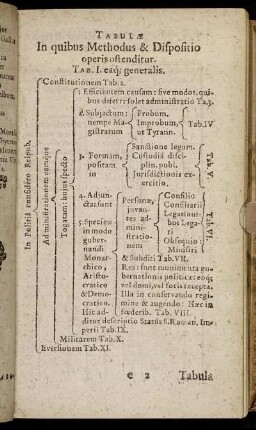 TABULÆ
In quibus Methodus & Dispositio
operis ostenditur.
TAB. I. eaq; generalis.
In Politia considero Reipub.
Constitutionem Tab. 2.
Ad ministrationem eamque
Togatam: hujus specto
1. Efficientem causam: sive modos, quibus
dari et solet administratio Ta. 3.
2. Subjectum:
nempe Magistratum
Probum.
Improbum,
ut Tyrann.
Tab. IV
3. Formam,
positam
in
Sanctione legum.
Custodia disciplin.
publ.
Jurisdictionis exercitio.
Tab. V.
4. Adjuncta:
sunt
Personæ,
juvantes
administrationem
Consilio
Consiliarii
Legationibus
Legati
Obsequio
Ministri
Tab. VI.
& Subditi Tab. VII.
Res: sunt munimenta gubernationis
politicæ: eoq;
vel domi, vel foris recepta.
Illa in conservando regimine
& augendo: Hæc in
fœderib. Tab. VIII.
5. Species
in modo
gubernandi
Monarchico,
Aristocratico
& Democratico.
Hic additur
descriptio Status S. Roman. Imperii
Tab. IX.
Militarem Tab. X.
Eversionem Tab. XI.
e 2
Tabula